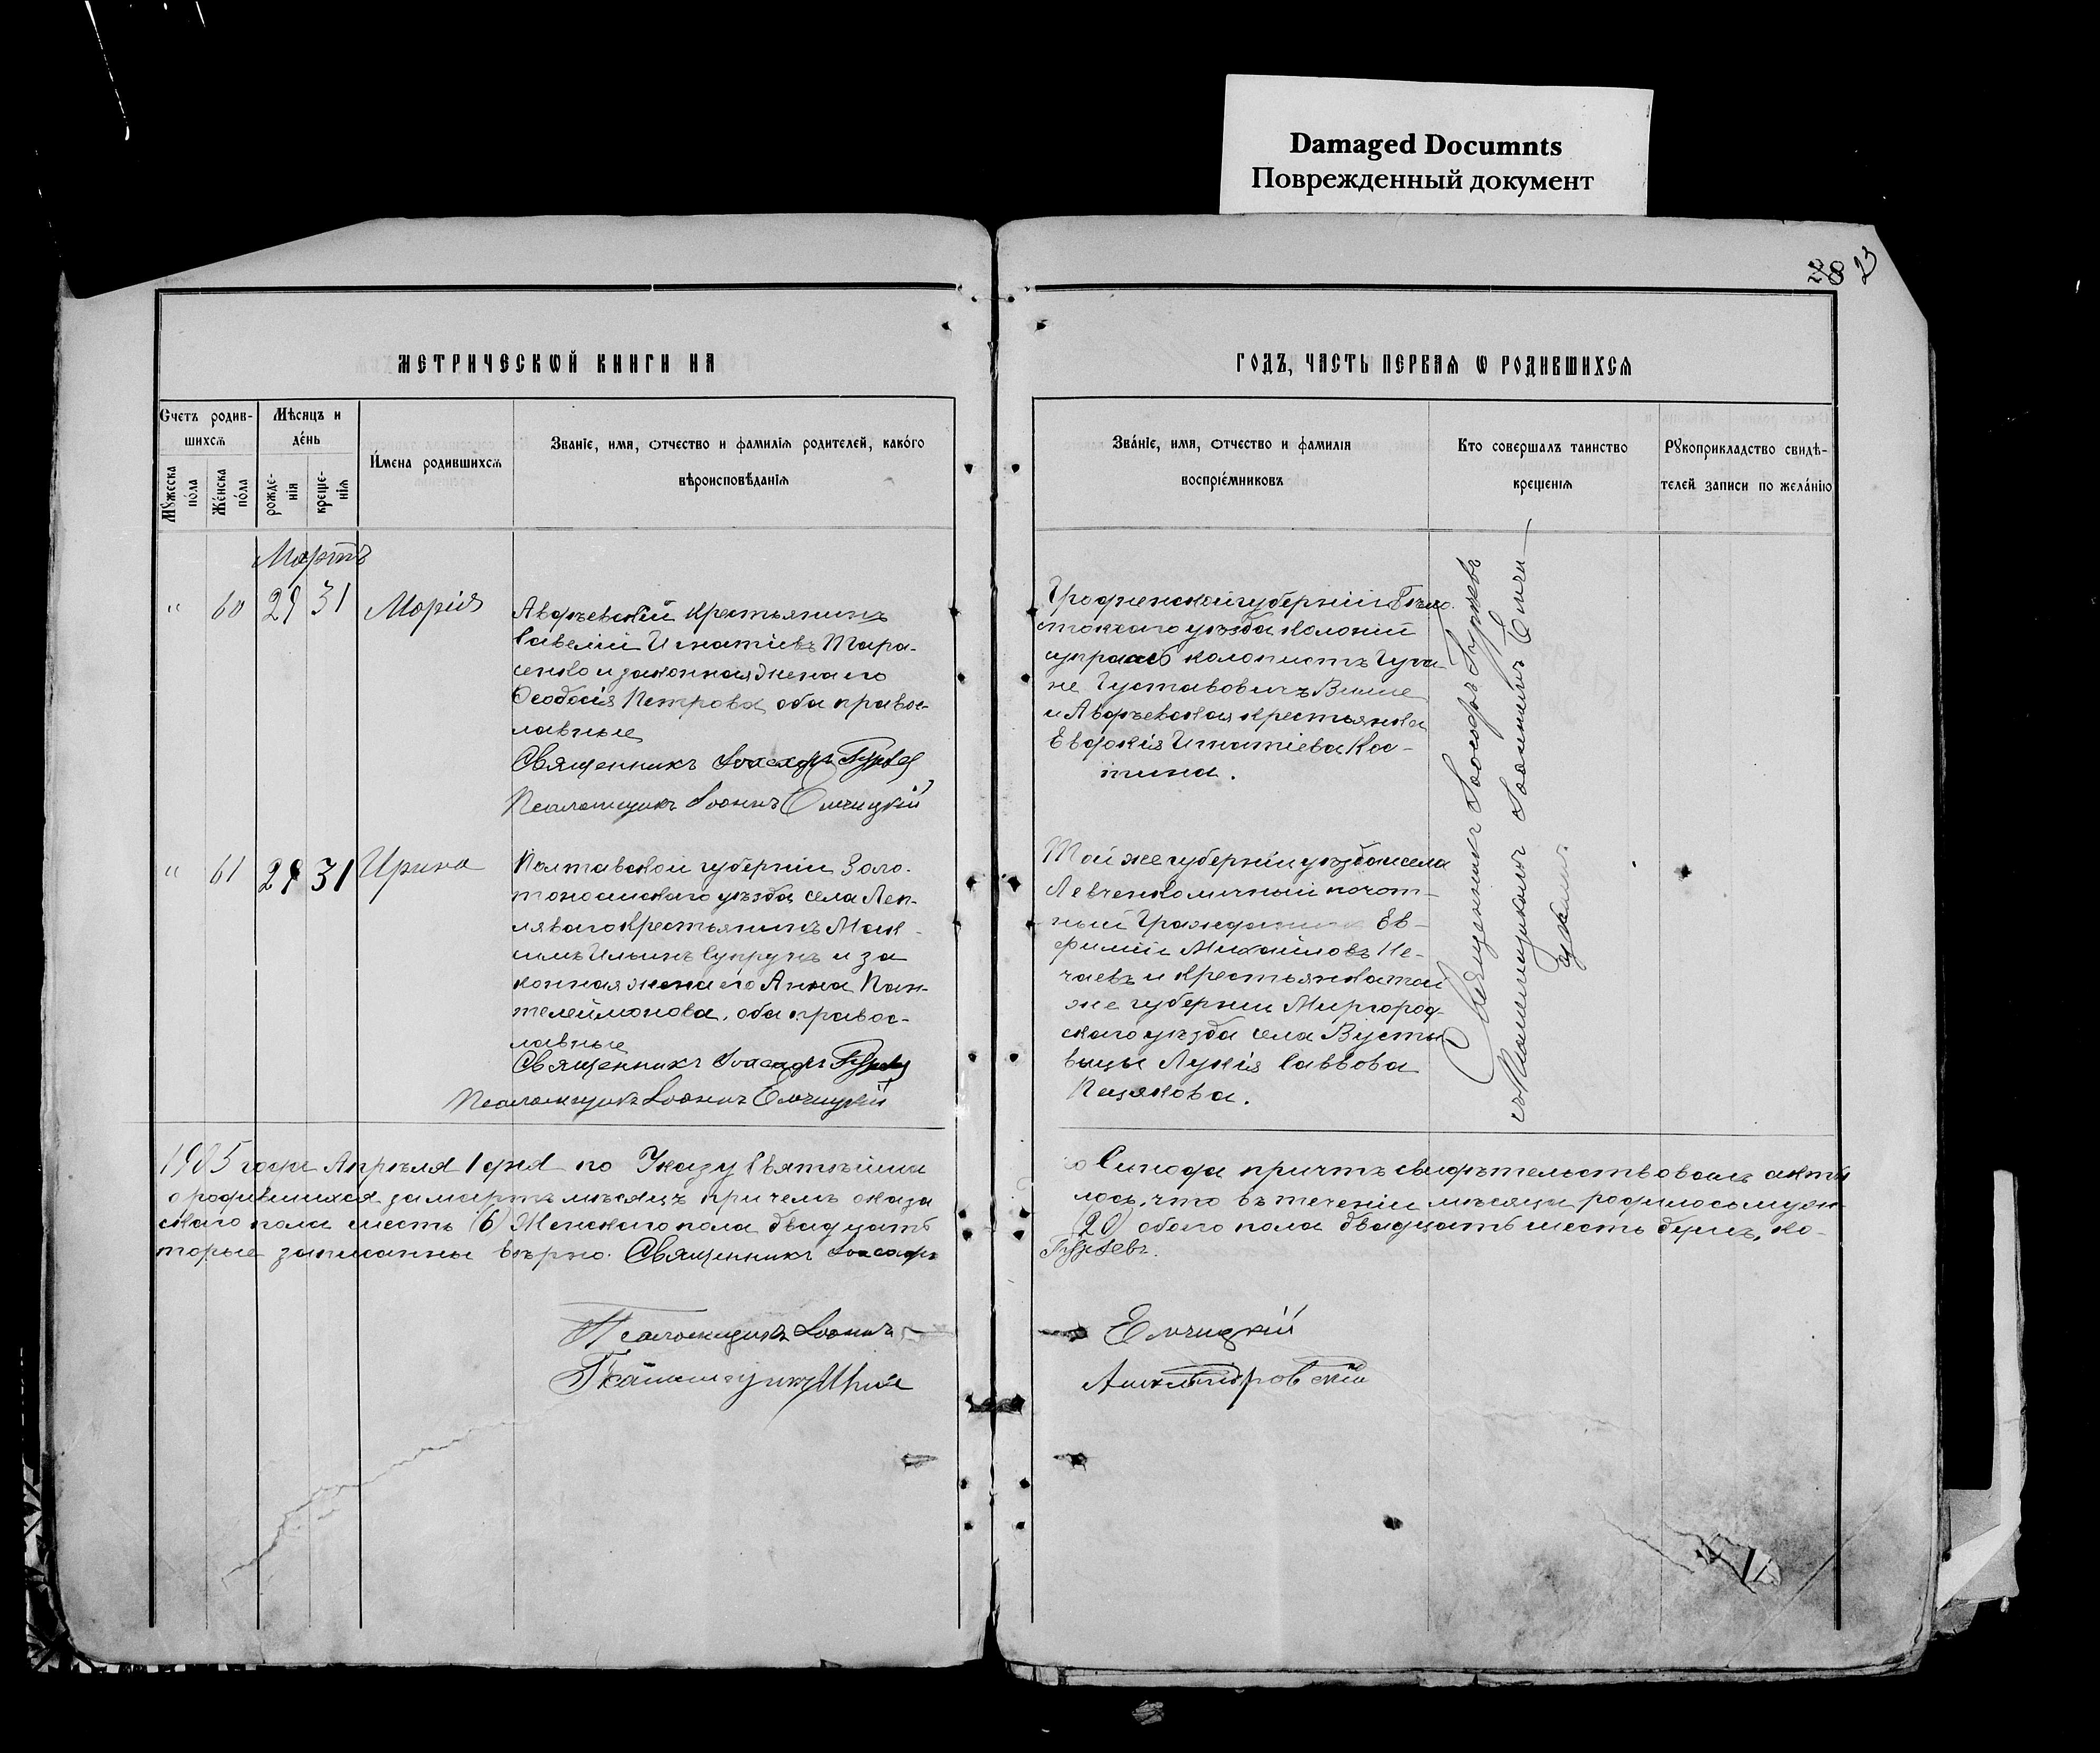 Damaged Documnts
Поврежденный документ
28 23
МЕТРИЧЕСКѠЙ КНИГИ НА
ГОДЪ, ЧАСТЬ ПЕРВАѦ Ѡ РОДИВШИХСѦ
Счетъ родив-
шихсѧ
Мѣсяцъ и
де́нь
Мꙋжеска
по́ла
Же́нска
по́ла
рожде-
нїя
креще-
нїѧ
И́мена родившихсѧ
Званїе, имя, отчество и фамилїѧ родителей, како́го
вѣроисповѣданїѧ
Зва́нїе, имя, отчество и фамилїя
воспрїе́мниковъ
Кто совершалъ таинство
крещенїѧ
Рꙋкоприкладство свидѣ-
телей записи по жела́нїю
Мартъ
" 60 29 31 Марія
Авдѣевскій крестьянинъ
Савелій Игнатіевъ Тара-
сенко и законная жена его
Ѳеодосія Петрова, оба правос-
лавные
Священникъ Іоасафъ Гурьев
Псаломщикъ Іоаннъ Ельчицкій
Гродненской губерніи Бѣло-
стокскаго уѣзда колоніи
супрасль колонистъ
Густавовичъ
и Авдѣевская крестьянка
Евдокія Игнатіева Кос-
тина.
Священникъ Іоасафъ Гурьевъ
съ Псаломщикомъ Іоанномъ Ельчи-
цкимъ
" 61 29 31 Ирина
Полтавской губерніи Золо-
тоношскаго уѣзда села Леп-
ляваго крестьянинъ Мак-
симъ Ильинъ Супрунъ и за
конная жена его Анна Пан-
телеймонова, оба правос-
лавные
Священникъ Іоасафъ Гурьев
Псаломщикъ Іоаннъ Ельчицкій
Той же губерніи уѣзда и села
Левченко личный почот-
ный Гражданинъ Ев-
фимій Михайловъ Не-
чаевъ и крестьянка той
же губерніи Миргород-
скаго уѣзда села
Лукія Саввова
1905 года Апрѣля 1 дня по Указу Святѣйша
го Синода причтъ свидѣтельствовалъ акты
о родившихся за мартъ мѣсяцъ при чемъ оказа
лось, что въ теченіи мѣсяца родилось муж-
скаго пола шесть (6) Женскаго пола двадцать
(20) обоего пола двадцать шесть душъ, ко-
торые записаны вѣрно. Священникъ Іоасафъ
Гурьевъ.
Псаломщикъ Іоаннъ
Ельчицкій